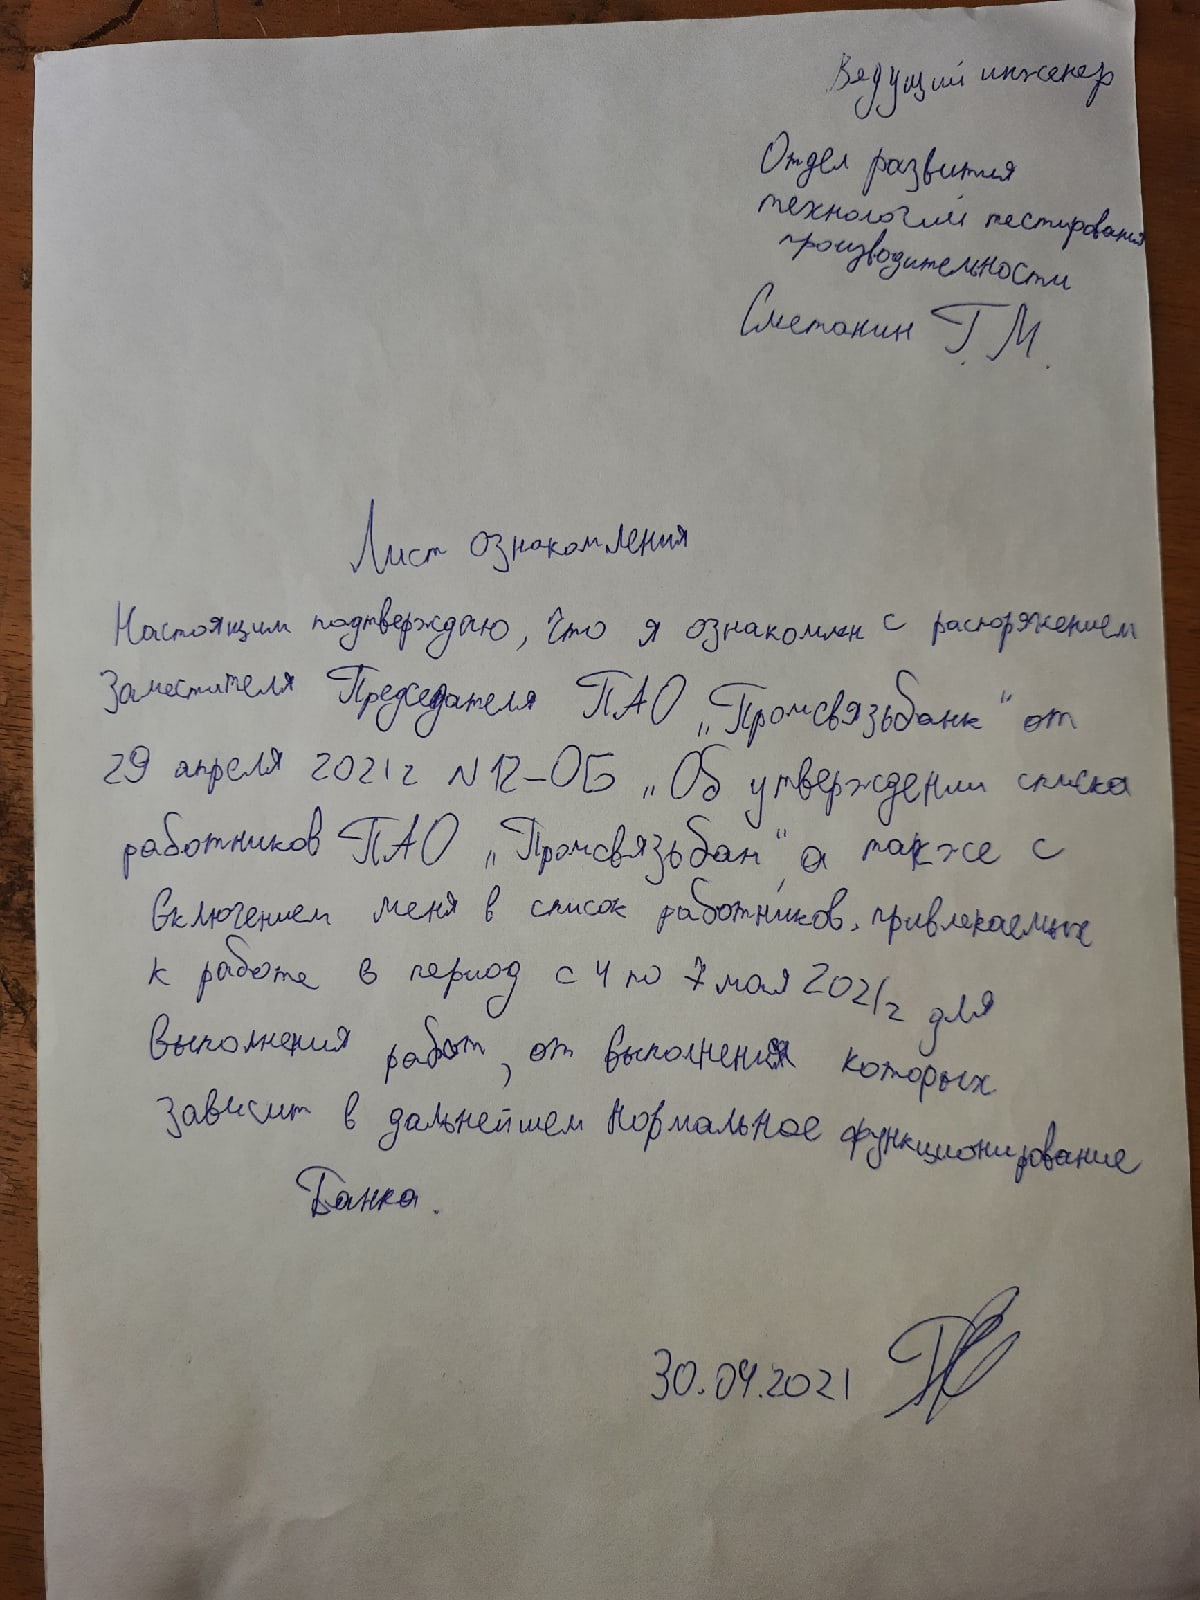 Ведущий инженер
Отдел развития
технологий тестирования
производительности
Сметанин Г.М.
Лист ознакомления
Настоящим подтверждаю, что я ознакомлен с распоряжением
Заместителя Председателя ПАО „Промсвязьбанк" от
29 апреля 2021г N12-ОБ „Об утверждении списка
работников ПАО „Промсвязьбан", а также с
включением меня в список работников, привлекаемых
к работе в период с 4 по 7 мая 2021г для
выполнения работ, от выполнения которых
зависит в дальнейшем нормальное функционирование
Банка.
30.04.2021